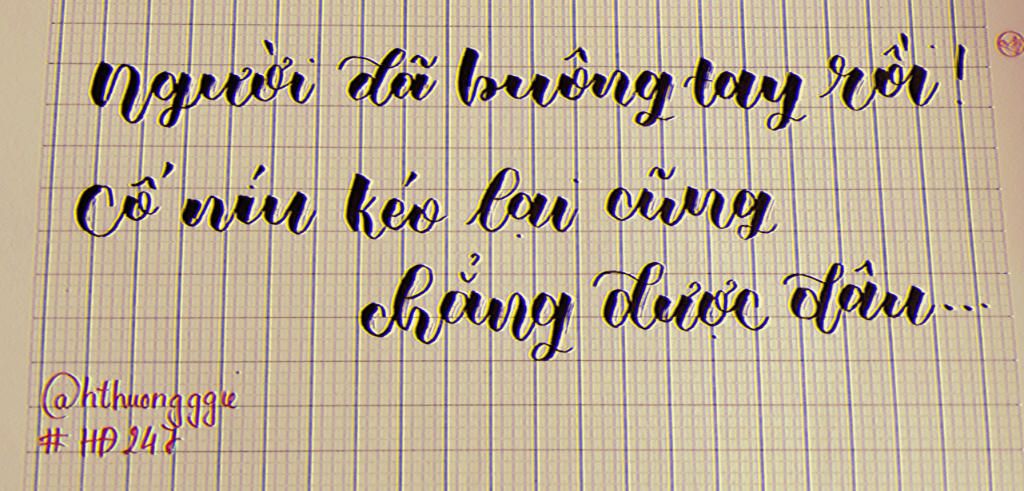 Người đã buông tay rồi!
Cố níu kéo lại cũng
chẳng được đâu...
@hthuongggie
# HĐ247